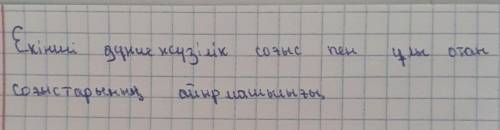 Екінші дүние жүзілік соғыс пен ұлы отан
соғыстарының айырмашылығы